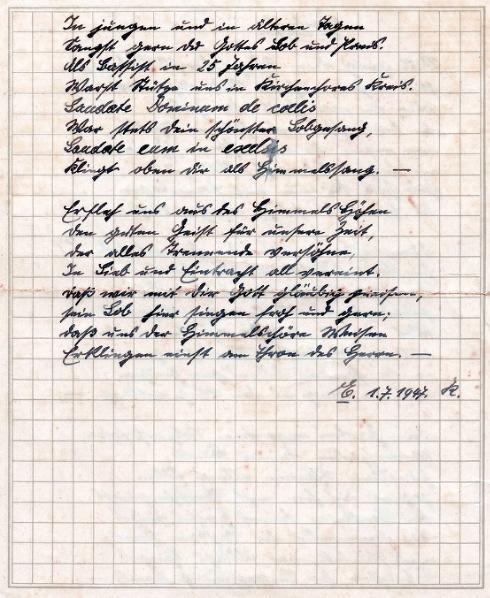 In jungen und in älteren Tagen
Sangst gern du Gottes Lob und Preis.
Als Bassist in 25 Jahren
Warst Stütze uns in Kirchenchores Kreis.
Laudate Dominum de coelis
War stets dein schönster Lobgesang,
Laudate eum in exelsis
Klingt oben dir als Himmelssang. —
Erfleh uns aus des Himmels Höhen
Den guten Geist für unsere Zeit,
Der alles Trennende versöhne,
In Lieb und Eintracht all vereint.
Daß wir mit dir Gott gläubig preisen,
sein Lob hier singen froh und gern;
daß uns der Himmelschöre Weisen
Erklingen einst am Thron des Herrn. —
E. 1.7.1947. K.